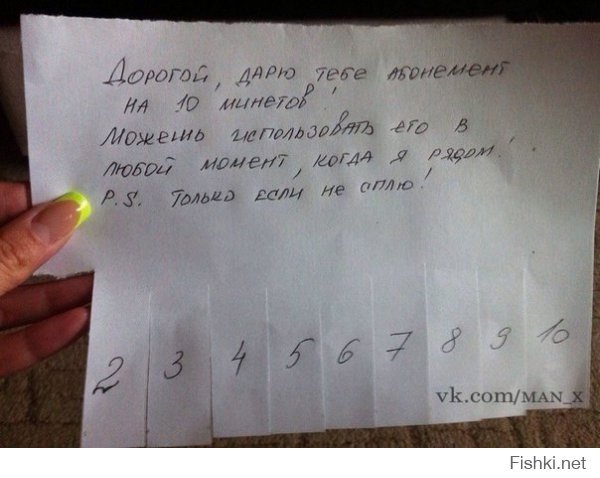 Дорогой, дарю тебе абонемент
на 10 минетов!
Можешь использовать его в
любой момент, когда я рядом!
P.S. только если не сплю!
2 3 4 5 6 7 8 9 10
vk.com/MAN_X
Fishki.net